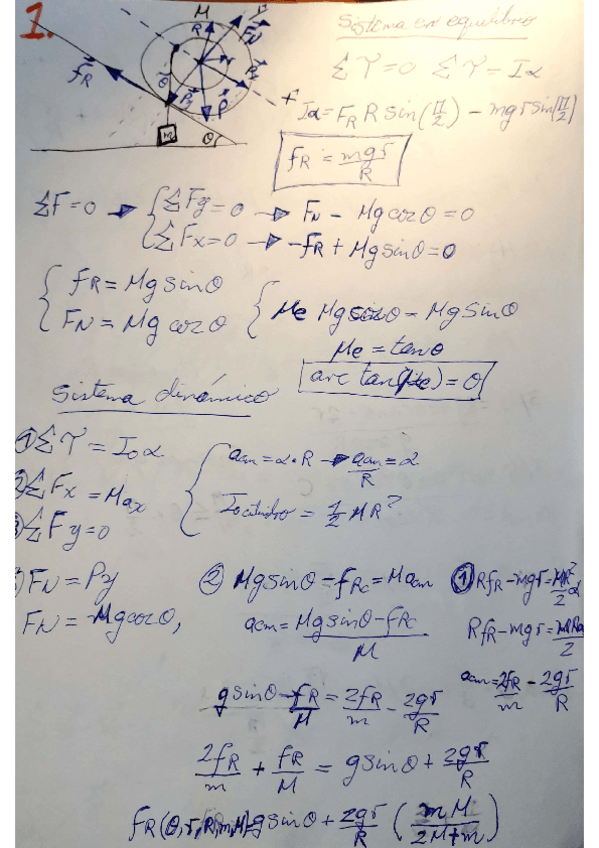 1.
M
R
r
P
F_N
f_R
P_x
P_y
P
θ
m
θ
x
Sistema en equilibrio
Στ=0 Στ=Iα
Iα=F_R R sin(π/2) - mgr sin(π/2)
f_R = mgr/R
ΣF=0 → { ΣFy=0 → F_N - Mg cosθ=0
ΣFx=0 → -f_R + Mg sinθ=0
{ f_R = Mg sinθ
F_N = Mg cosθ
{ μe Mg cosθ = Mg sinθ
μe = tanθ
arc tan(μe) = θ
Sistema dinámico
① Στ = I₀α
② ΣFx = Ma_x
③ ΣFy=0
{ a_cm = α·R → a_cm/R = α
I₀ cilindro = 1/2 MR²
③ F_N = Py
F_N = Mg cosθ,
② Mg sinθ - f_Rc = Ma_cm
a_cm = (Mg sinθ - f_Rc)/M
① Rf_R - mgr = MR²/2 α
Rf_R - mgr = MRa/2
a_cm = 2f_R/m - 2gr/R
g sinθ - f_R/M = 2f_R/m - 2gr/R
2f_R/m + f_R/M = g sinθ + 2gr/R
f_R(θ,r,R,m,M)= g sinθ + 2gr/R (mM/(2M+m))